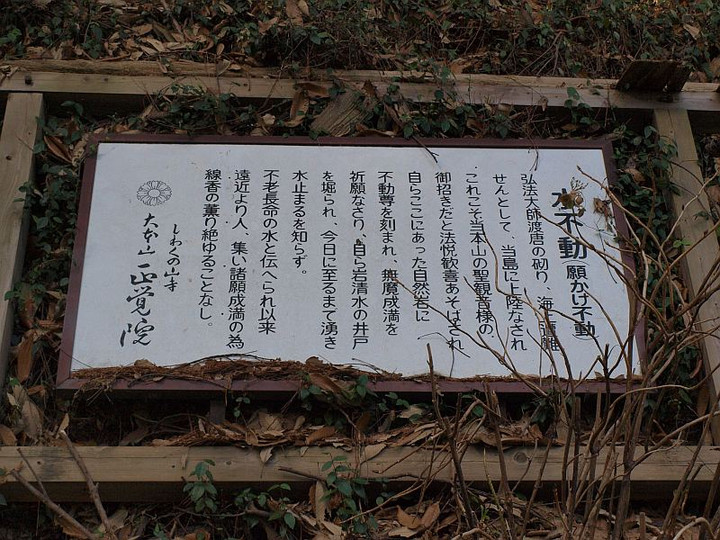 水不動(願かけ不動)
弘法大師渡唐の砌り、海上遭難
せんとして、当島に上陸なされ
これこそ当本山の聖観音様の
御招きだと法悦歓喜あそばされ
自らここにあった自然岩に
不動尊を刻まれ、無魔成満を
祈願なさり、自ら岩清水の井戸
を堀られ、今日に至るまで湧き
水止まるを知らず。
不老長命の水と伝へられ以来
遠近より人、集い諸願成満の為
線香の薫り絶ゆることなし。
しわくの山寺
大本山 正覚院